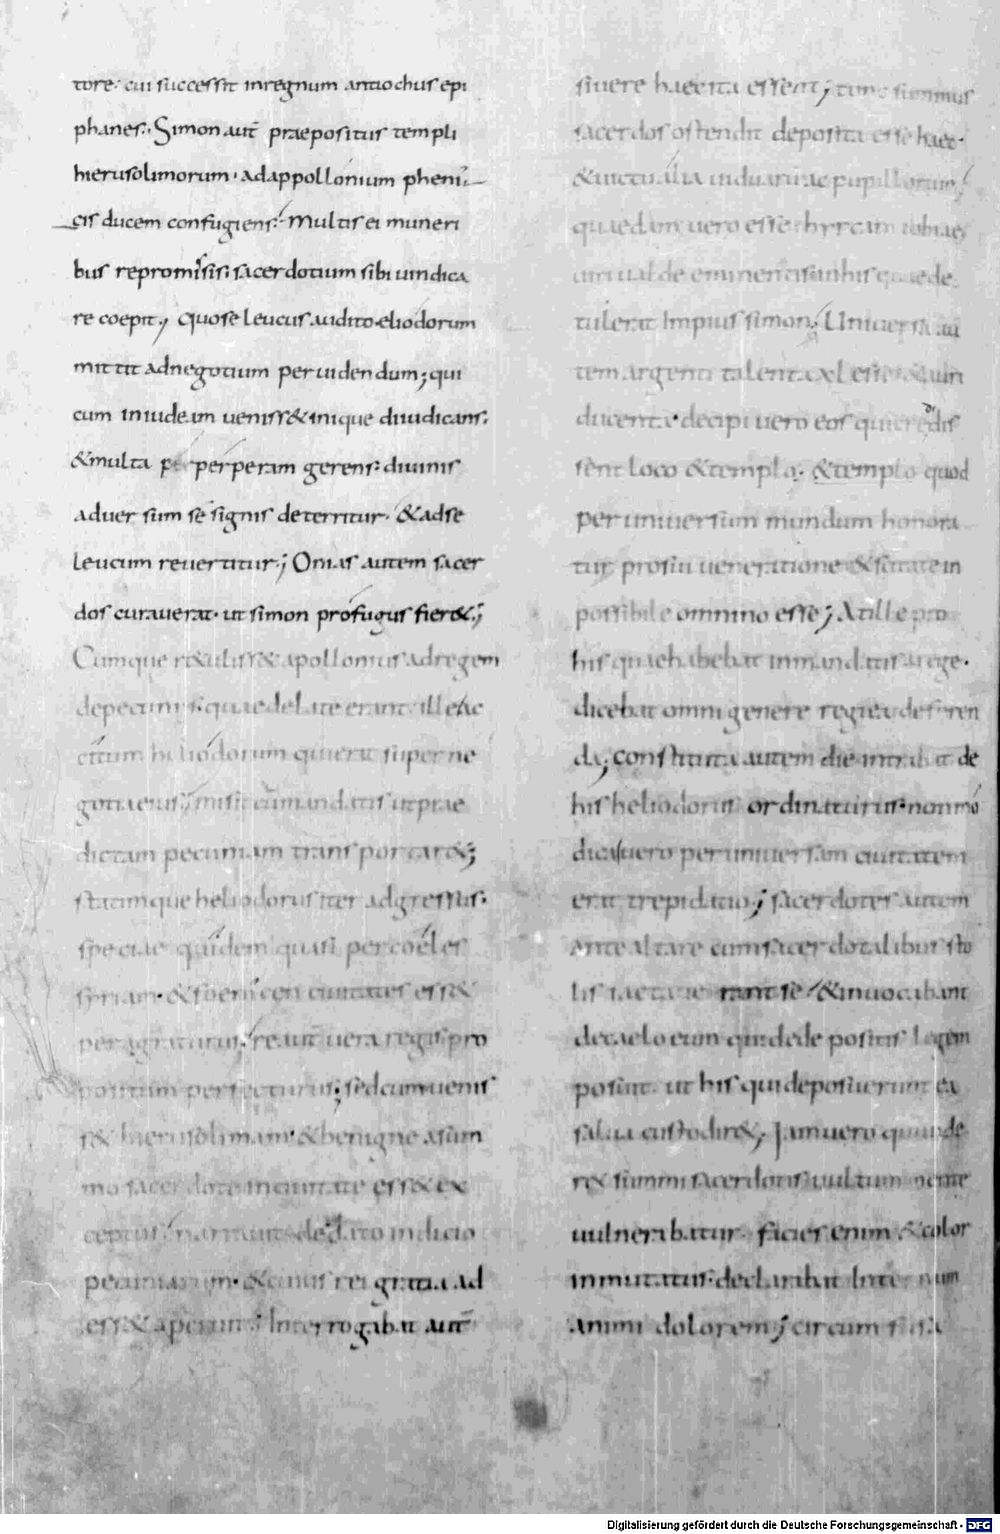 tore· cui successit inregnum antiochus epi
phanes·Simon aut̄ praepositus templi
hierusolimorum· adappollonium pheni
cis ducem confugiens· Multis ei muneri
bus repromisis· sacerdotium sibi uindica
re coepit; quo seleucus audito eliodorum
mittit adnegotium peruidendum; qui
cum iniudeam uenisset inique diiudicans·
&multa perperam gerens· diuinis
aduersum se signis deterritur· &adse
leucum reuertitur; Onias autem sacer
dos curauerat· ut simon profugus fier&;
Cumque r&uliss& apollonius adregem
depecuniis quae delate erant· ille ac
citum heliodorum qui erat super ne
gotia eius· misit cū mandatis ut prae
dictam pecuniam transportar&;
statimque heliodorus iter adgressus·
speciae quidem quasi per coeles
syriam· &foenicen ciuitates ess&
peragraturus· re aut̄ uera regis pro
positum perfecturus; sed cum uenis
s& hierusolimam· &benigne asum
mo sacerdote inciuitate ess& ex
ceptus narrauit de dato indicio
pecuniarum· &cuius rei gratia ad
ess& aperuit; Interrogabat aut̄
siuere haec ita essent; tunc summus
sacerdos ostendit deposita esse haec·
&uictualia uiduarum ac pupillorum
quaedam uero esse hyrcani tobiae
uiri ualde eminentis inhis quae de
tulerat Impius simon; Uniuersa au
tem argenti talenta xl esse &auri
ducenta· decipi uero eos qui credidis
sent loco &templo· &templo quod
per uniuersum mundum honora
tur pro sui ueneratione &scitatem
possibile omnino esse; At ille pro
his quae habebat inmandatis arege·
dicebat omni genere regi ea deferen
da; constituta autem die intrabat de
his heliodorus ordinaturus· non mo
dica uero per uniuersam ciuitatem
erat trepidatio; sacerdotes autem
ante altare cum sacerdotalibus sto
lis iactauerunt se &inuocabant
decaelo eum qui dede positis legem
posuit· ut his qui deposuerunt ea
salua custodir&; Iam uero qui uide
r& summi sacerdotis uultum mente
uulnerabatur· facies enim &color
inmutatus· declarabat Internum
animi dolorem; circum fusa